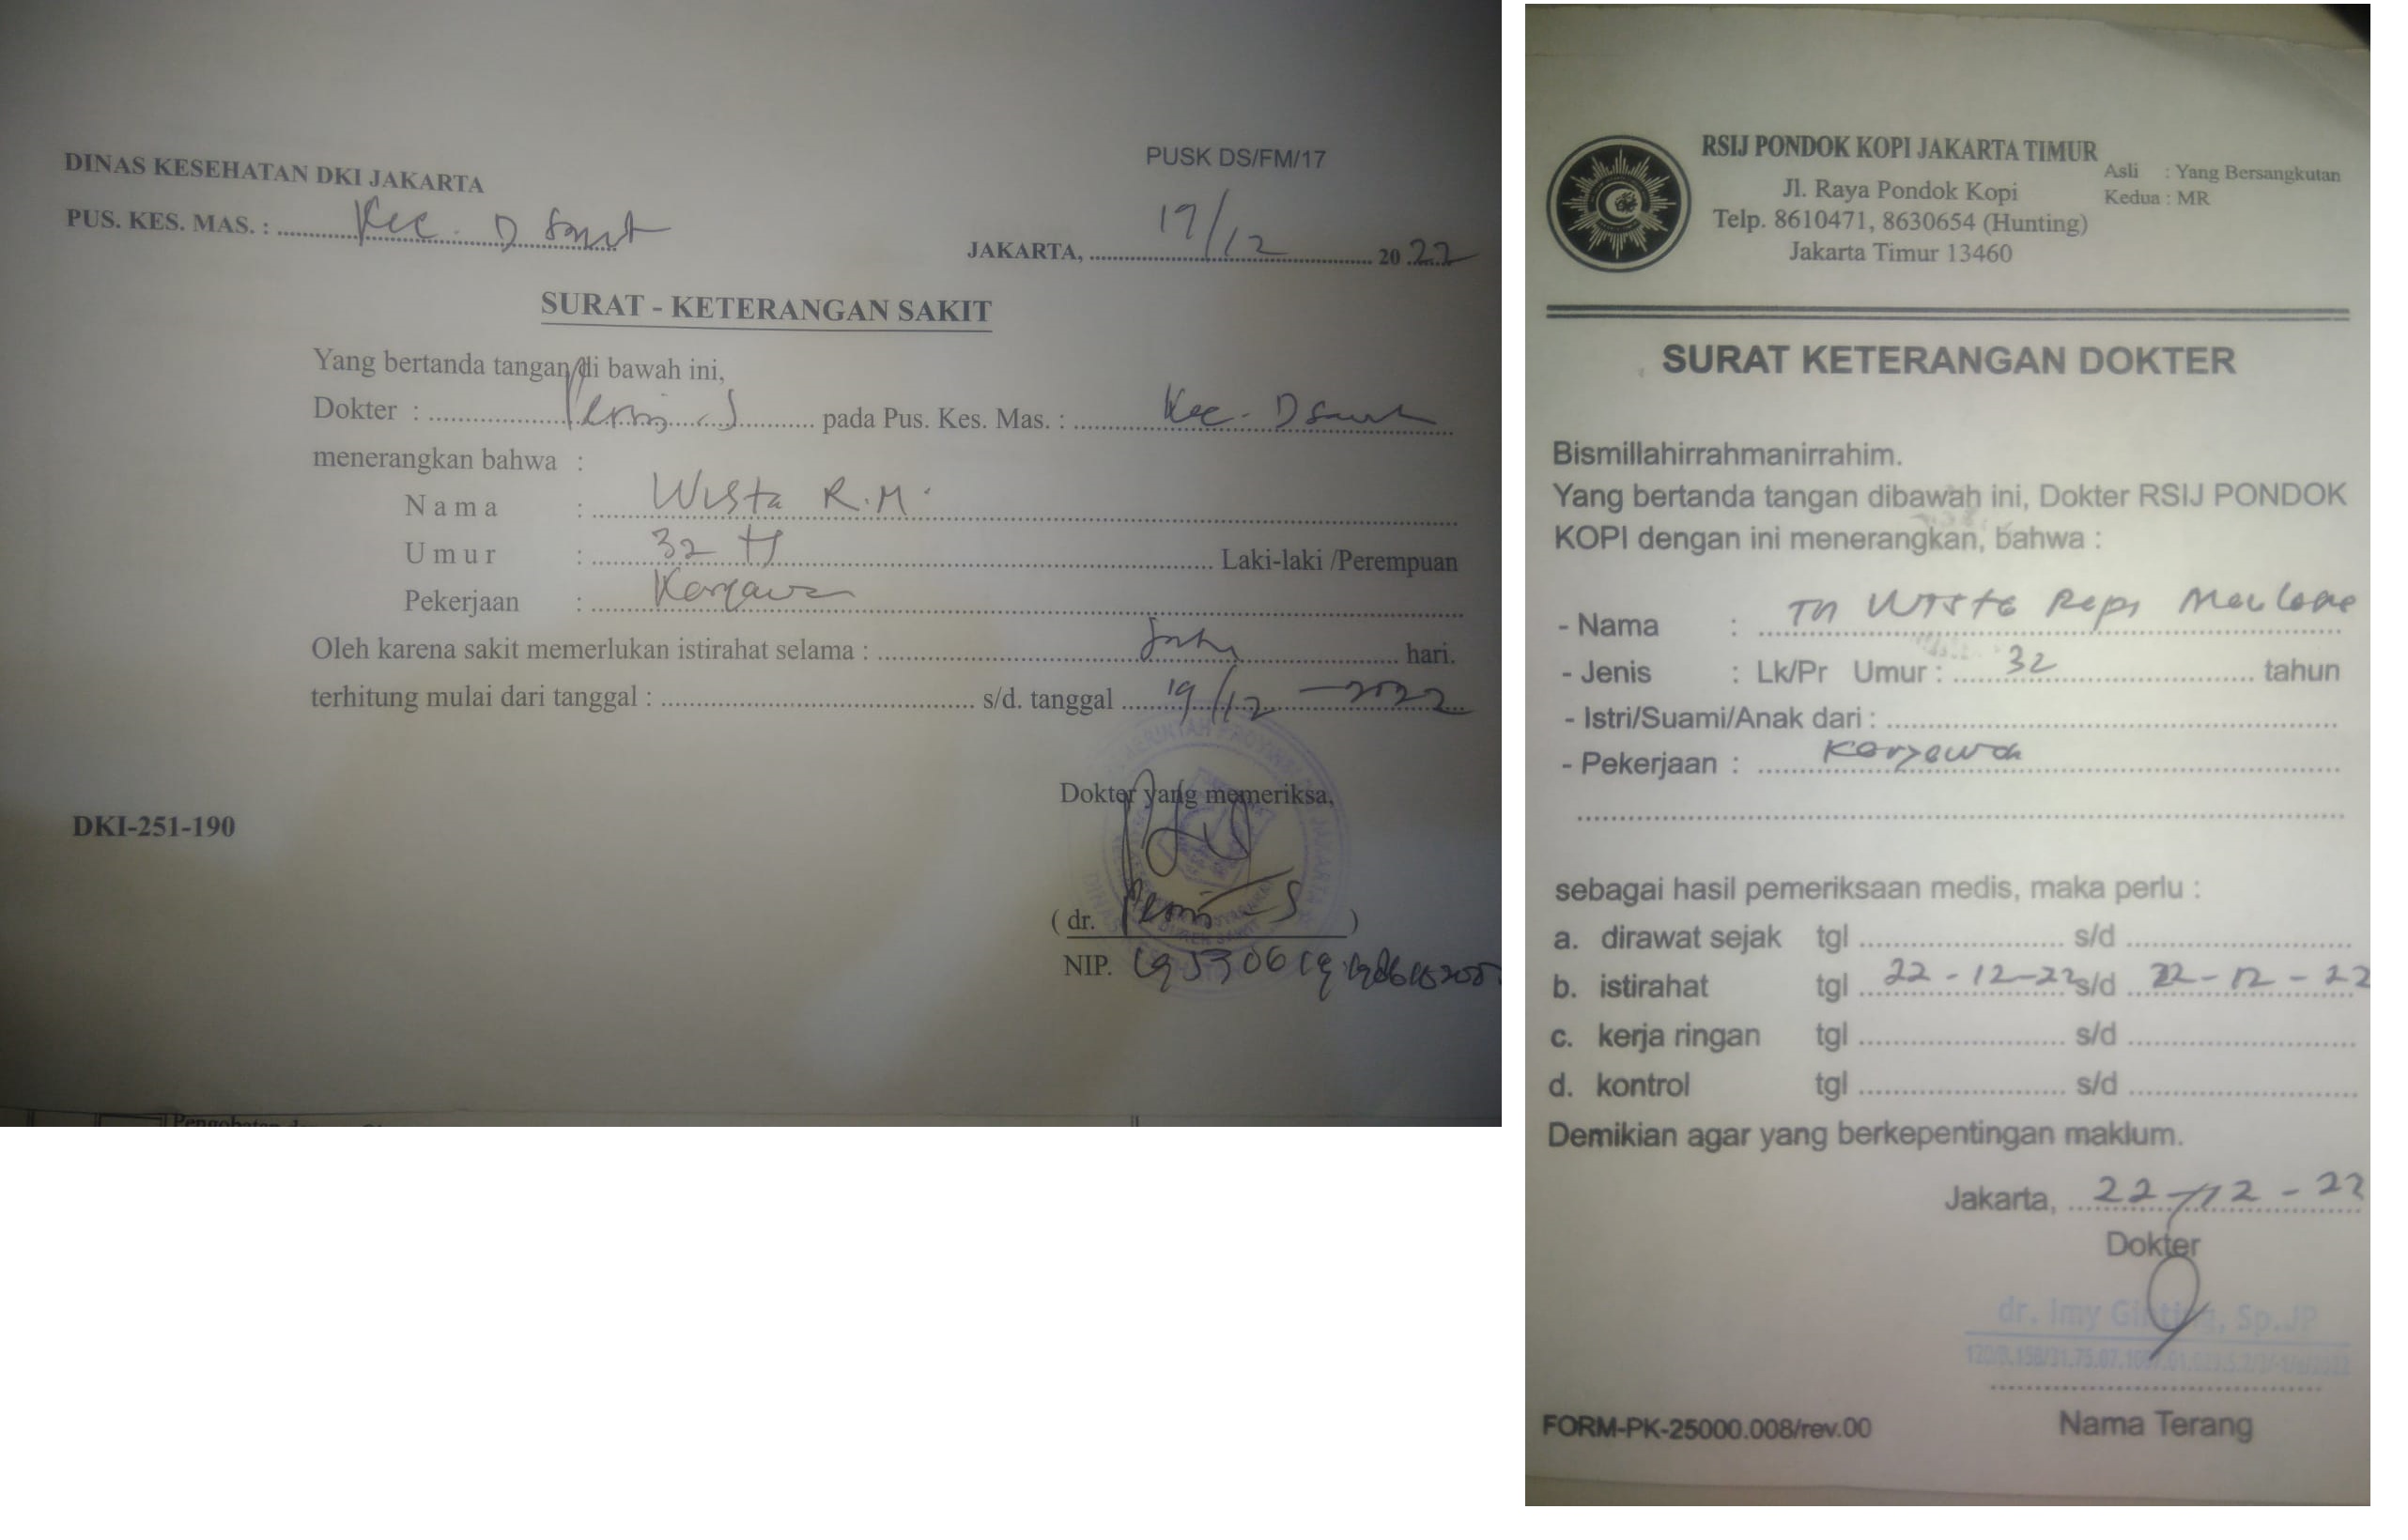 DINAS KESEHATAN DKI JAKARTA
PUS. KES. MAS. : Kec. D Sawit
PUSK DS/FM/17
JAKARTA, 19/12 2022
SURAT - KETERANGAN SAKIT
Yang bertanda tangan di bawah ini,
Dokter : pada Pus. Kes. Mas. : Kec. D Sawit
menerangkan bahwa :
Nama : Wista R.M.
Umur : 32 th Laki-laki /Perempuan
Pekerjaan : Karyawan
Oleh karena sakit memerlukan istirahat selama : Satu hari.
terhitung mulai dari tanggal : s/d. tanggal 19/12 - 2022
Dokter yang memeriksa,
DKI-251-190
( dr. )
NIP.
RSIJ PONDOK KOPI JAKARTA TIMUR
Jl. Raya Pondok Kopi
Telp. 8610471, 8630654 (Hunting)
Jakarta Timur 13460
Asli : Yang Bersangkutan
Kedua : MR
SURAT KETERANGAN DOKTER
Bismillahirrahmanirrahim.
Yang bertanda tangan dibawah ini, Dokter RSIJ PONDOK
KOPI dengan ini menerangkan, bahwa :
- Nama : Tn Wista Repi Maulana
- Jenis : Lk/Pr Umur : 32 tahun
- Istri/Suami/Anak dari :
- Pekerjaan : Karyawan
sebagai hasil pemeriksaan medis, maka perlu :
a. dirawat sejak tgl s/d
b. istirahat tgl 22-12-22 s/d 22-12-22
c. kerja ringan tgl s/d
d. kontrol tgl s/d
Demikian agar yang berkepentingan maklum.
Jakarta, 22-12-22
Dokter
dr. Imy Ginting, Sp.JP
Nama Terang
FORM-PK-25000.008/rev.00